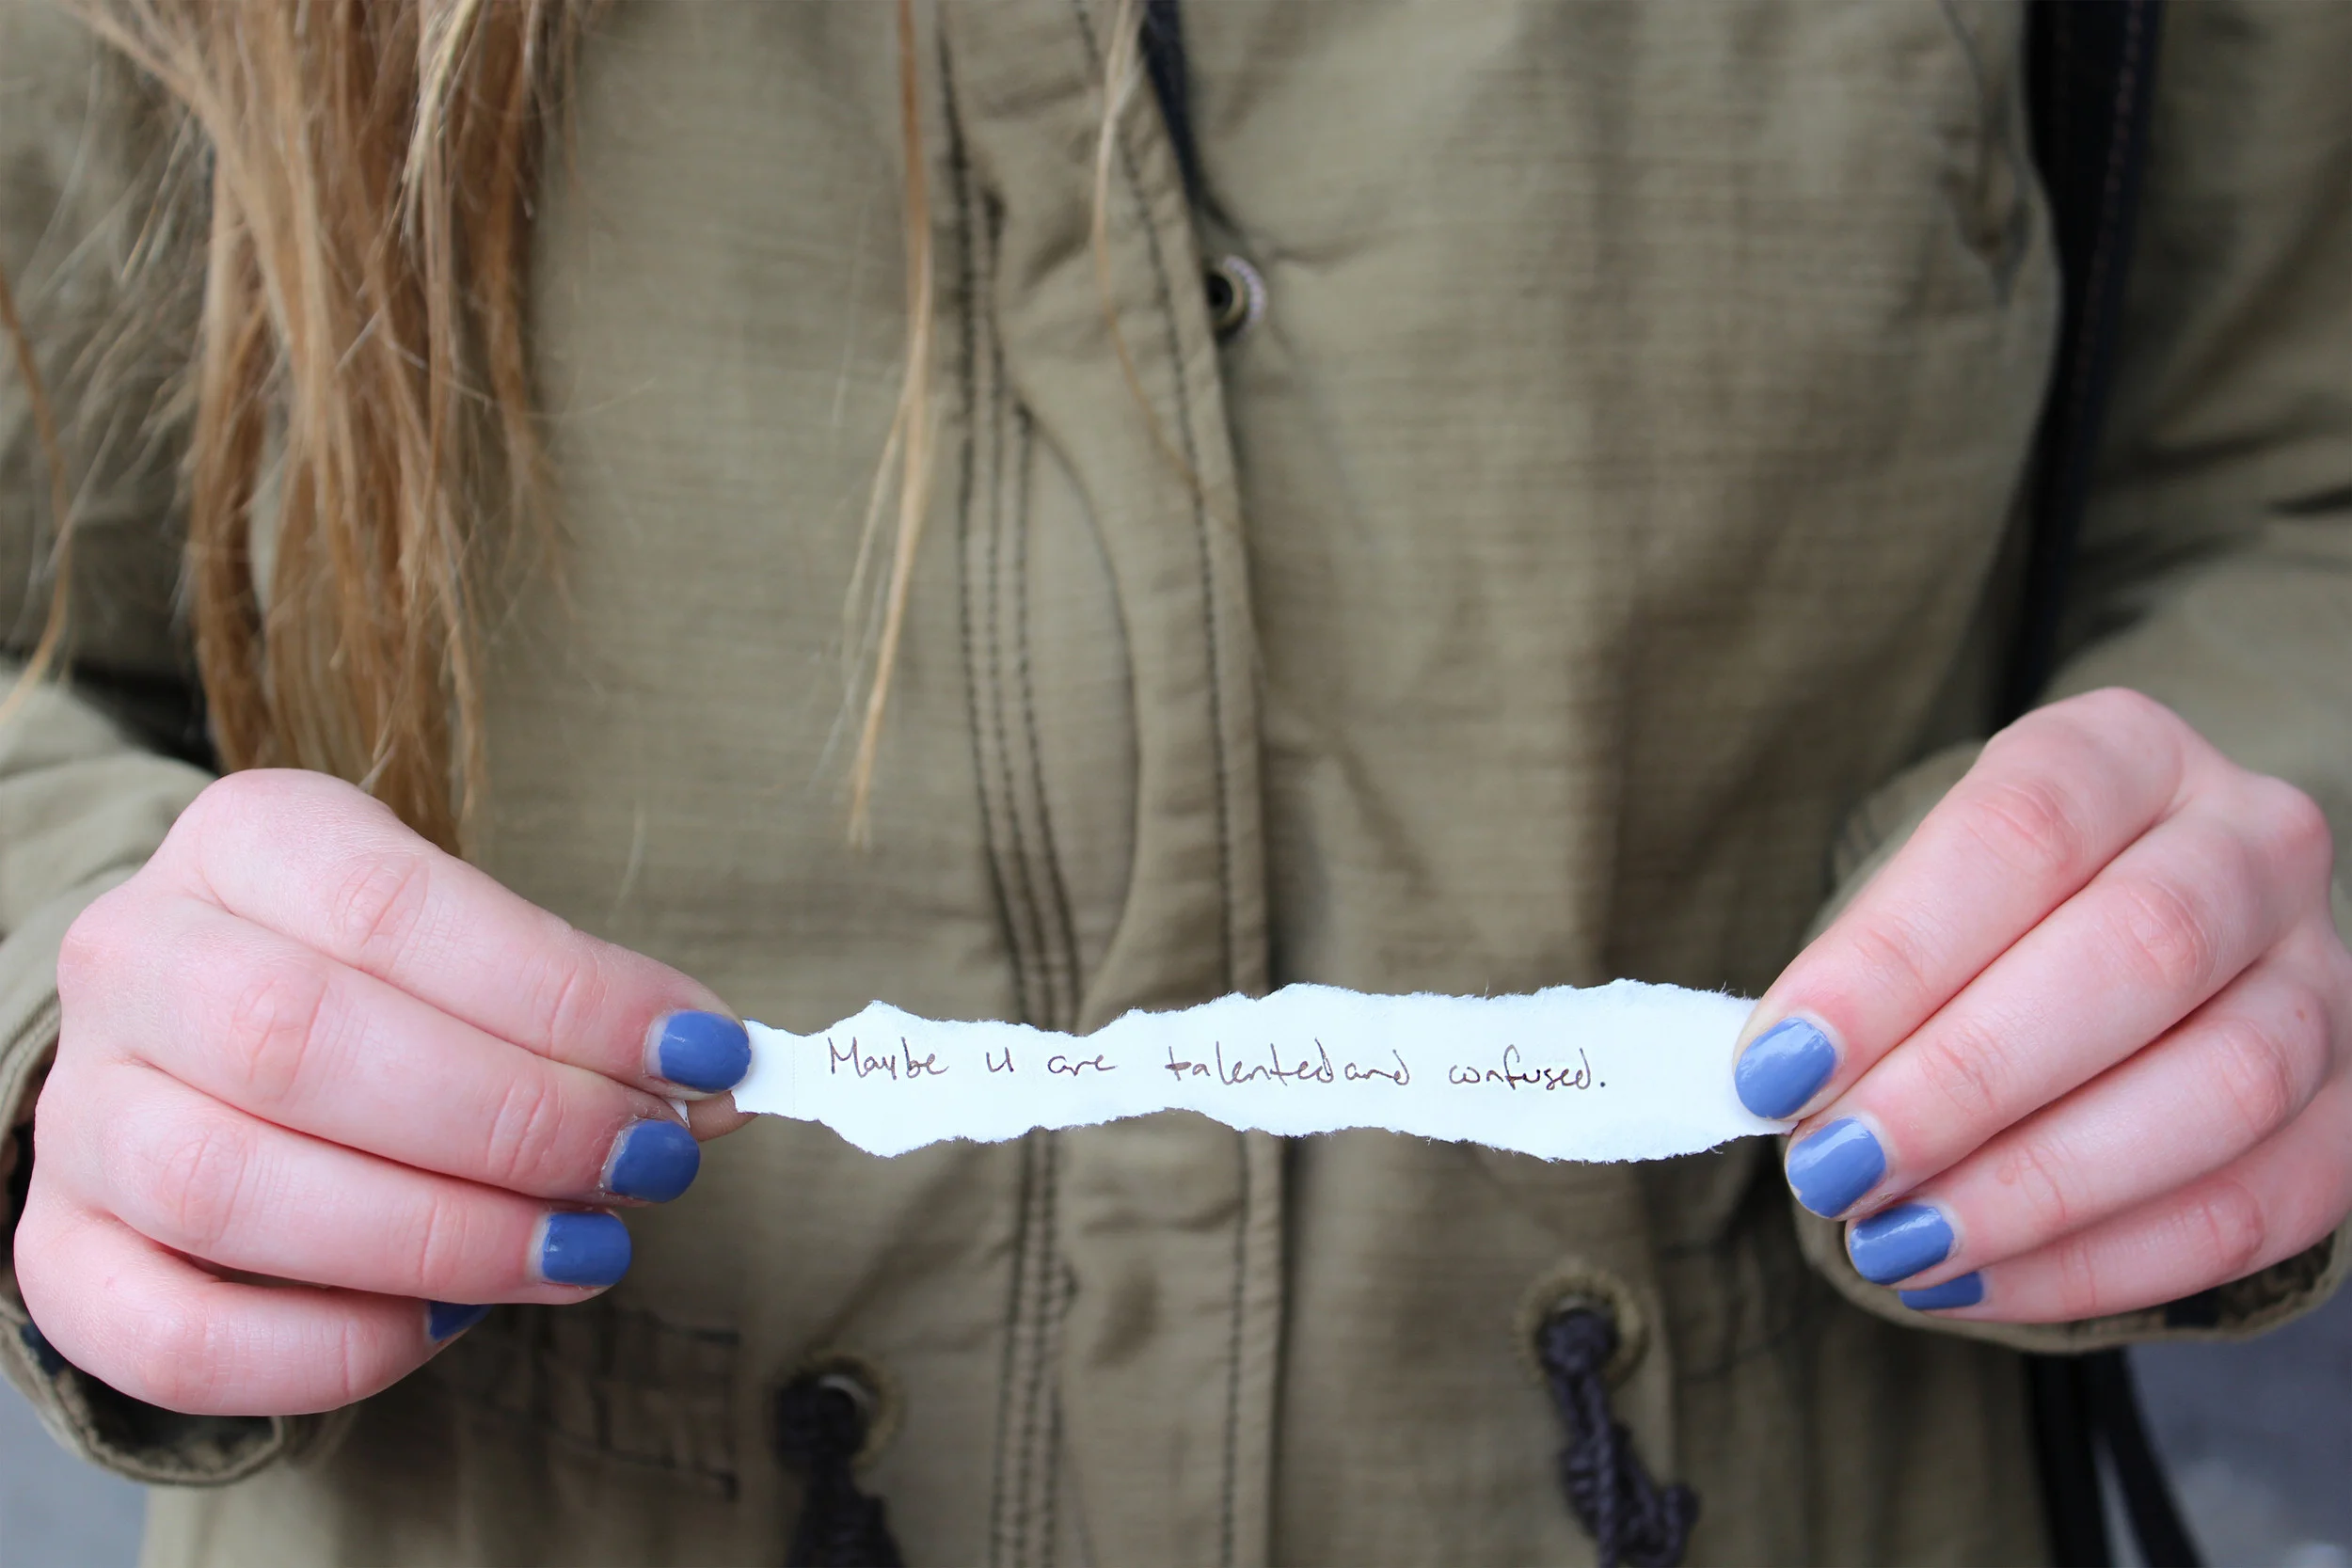 Maybe u are talented and confused.